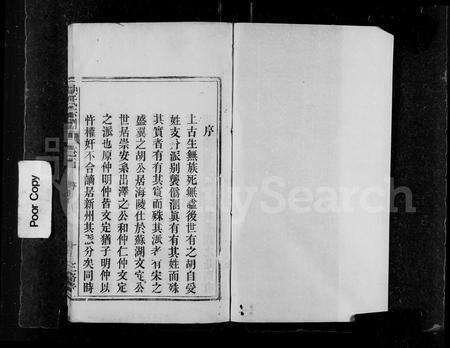 序
上古生無族死無諡後世有之胡自受
姓支分派別襲僞淄眞有有其姓而殊
其實者有有其實而殊其派者有宋之
盛冀之胡公居海陵仕於蘇湖文定公
世居崇安裊出澤之公和仲仁仲文定
之派也原仲明仲皆文定猶子明仲以
忤權奸不合謫居新州其派分矣同時
Poor Copy
FamilySearch